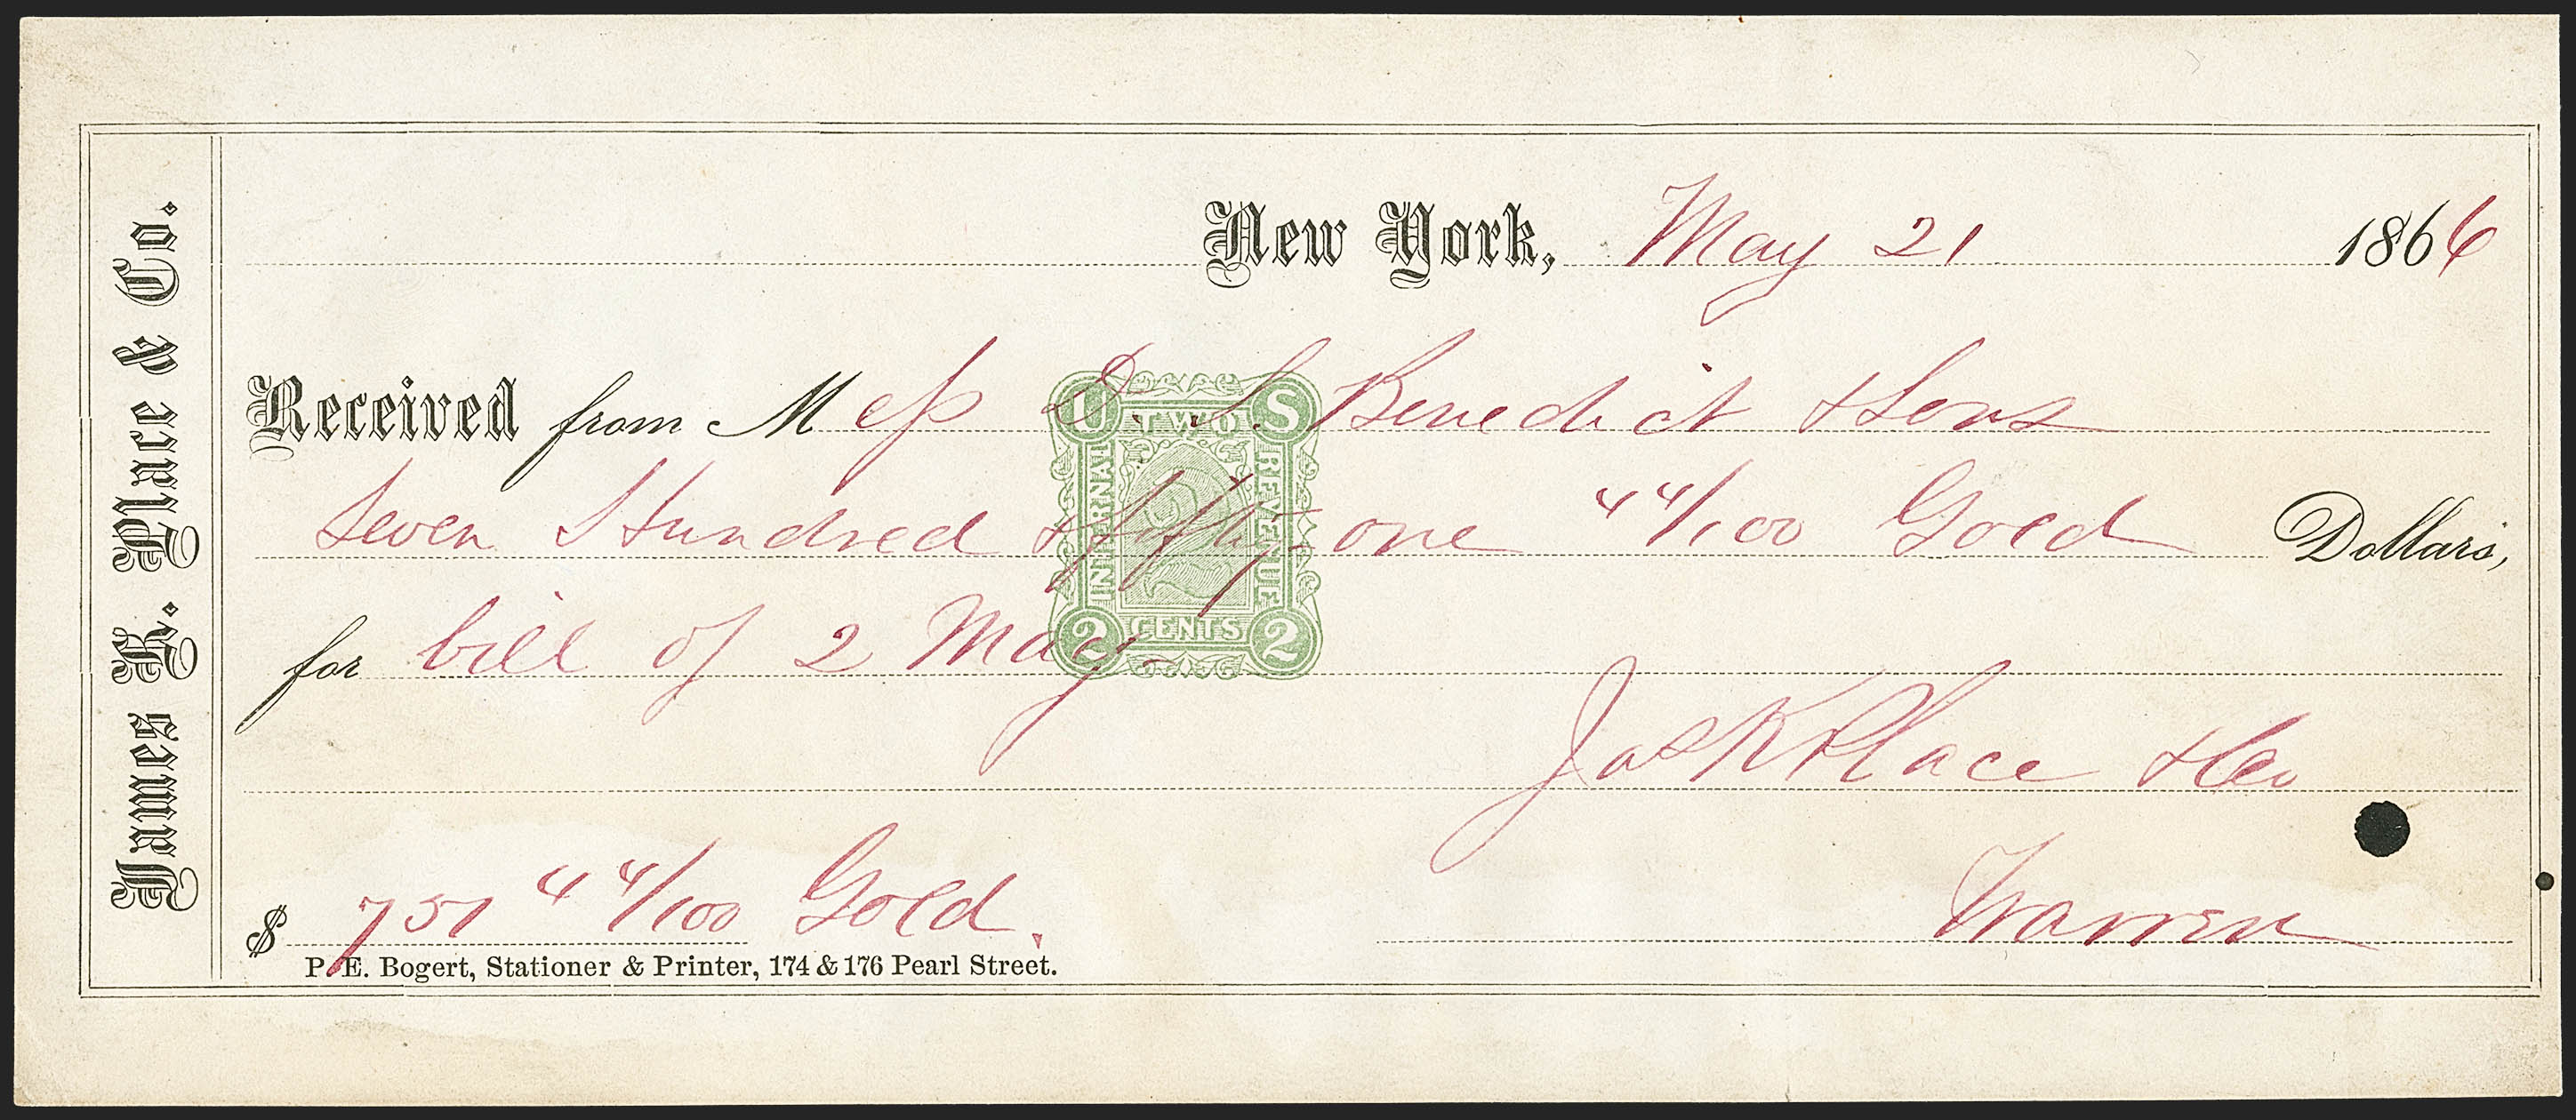 James K. Place & Co.
New York, May 21 1866
Received from Mess D. S. Benedict & Sons
Seven Hundred & fifty-one 44/100 Gold Dollars,
for bill of 2 May
Jas K Place & Co
$ 751 44/100 Gold.
Warren
P. E. Bogert, Stationer & Printer, 174 & 176 Pearl Street.
U S
TWO
INTERNAL REVENUE
2 CENTS 2